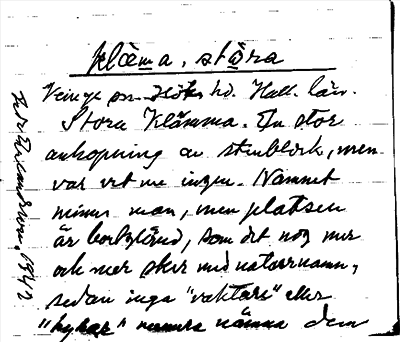 klæma, stɷra
Veinge sn. Höks hd. Hall. län.
Stora Klämma. En stor
anhopning av stenblock, men
var vet me ingen. Namnet
minns man, men platsen
är bortglömd, som det nog mer
och mer sker med naturnamn,
sedan inga "vaktare" eller
"hykar" numera nämna dem
1942